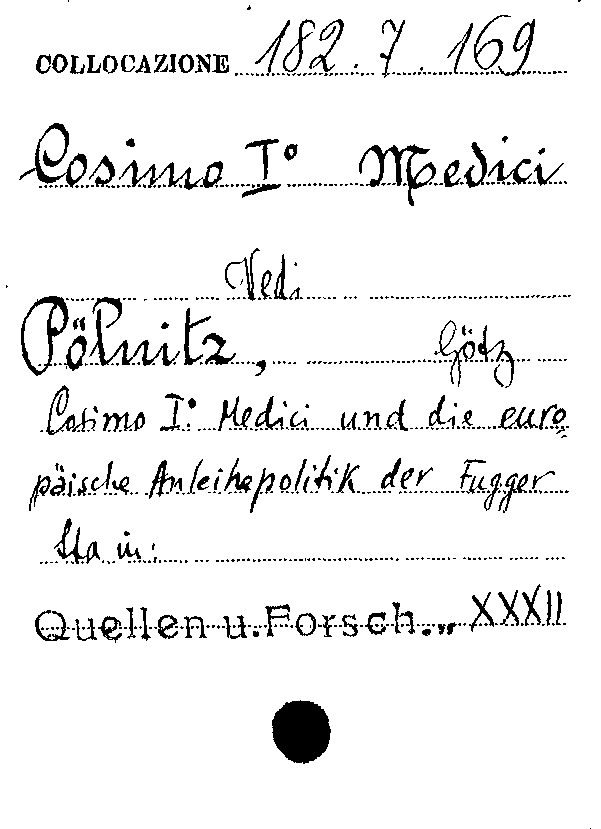 COLLOCAZIONE 182.7.169
Cosimo I° Medici
Vedi
Pölnitz, Götz
Cosimo I.° Medici und die euro=
päische Anleihepolitik der Fugger
Sta in:
Quellen u. Forsch.„ XXXII